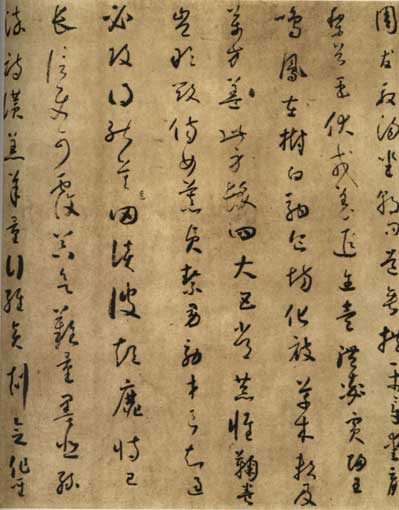 周發殷湯坐朝問道垂拱平章愛育
黎首臣伏戎羌遐邇壹體率賓歸王
鳴鳳在樹白駒食場化被草木賴及
萬方蓋此身髮四大五常恭惟鞠養
豈敢毀傷女慕貞絜男效才良知過
必改得能莫忘罔談彼短靡恃己
長信使可覆器欲難量墨悲絲
染詩讚羔羊景行維賢剋念作聖